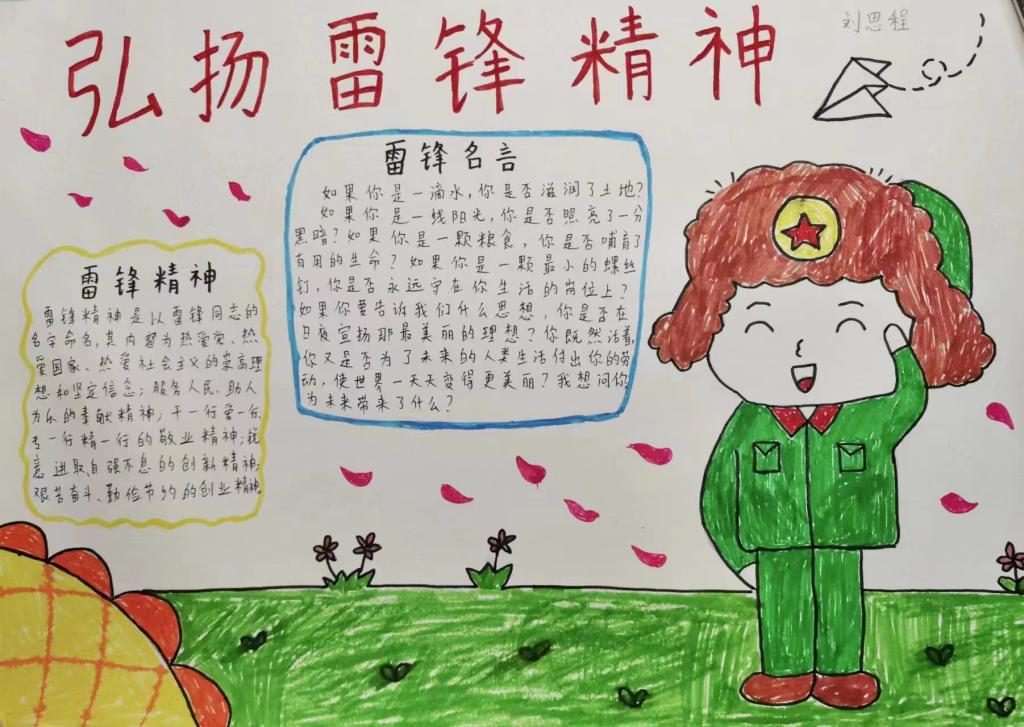 弘扬雷锋精神
刘思程
雷锋名言
如果你是一滴水,你是否滋润了土地?
如果你是一线阳光,你是否照亮了一分
黑暗?如果你是一颗粮食,你是否哺育了
有用的生命?如果你是一颗最小的螺丝
钉,你是否永远守在你生活的岗位上?
如果你要告诉我们什么思想,你是否在
日夜宣扬那最美丽的理想?你既然活着,
你又是否为了未来的人类生活付出你的劳
动,使世界一天天变得更美丽?我想问你,
为未来带来了什么?
雷锋精神
雷锋精神是以雷锋同志的
名字命名,其内容为热爱党、热
爱国家、热爱社会主义的崇高理
想和坚定信念;服务人民、助人
为乐的奉献精神;干一行爱一行、
专一行精一行的敬业精神;锐
意进取自强不息的创新精神;
艰苦奋斗、勤俭节约的创业精神。